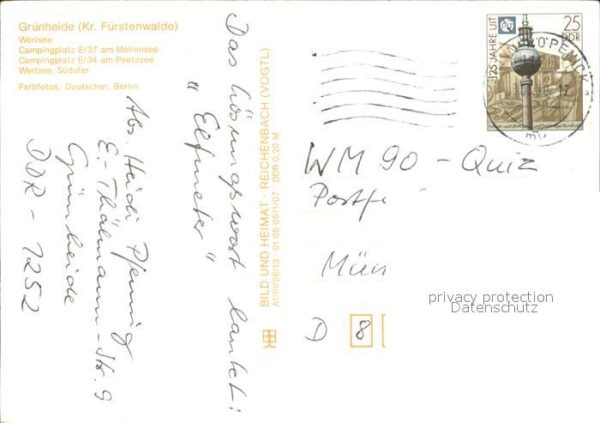 Grünheide (Kr. Fürstenwalde)
Werlsee
Campingplatz E/37 am Möllensee
Campingplatz E/34 am Peetzsee
Werlsee, Südufer
Farbfotos: Deutscher, Berlin
Abs. Heidi Pfennig
E.-Thälmann-Str. 9
Grünheide
DDR - 1252
Das Lösungswort lautet:
"Elfmeter"
BILD UND HEIMAT · REICHENBACH (VOGTL)
A1/III/26/13 · 01 05 0511/07 · DDR 0,20 M
125 JAHRE UIT
25
DDR
KÖPENICK 1
WM 90 - Quiz
Postf
Mün
D 8
privacy protection
Datenschutz